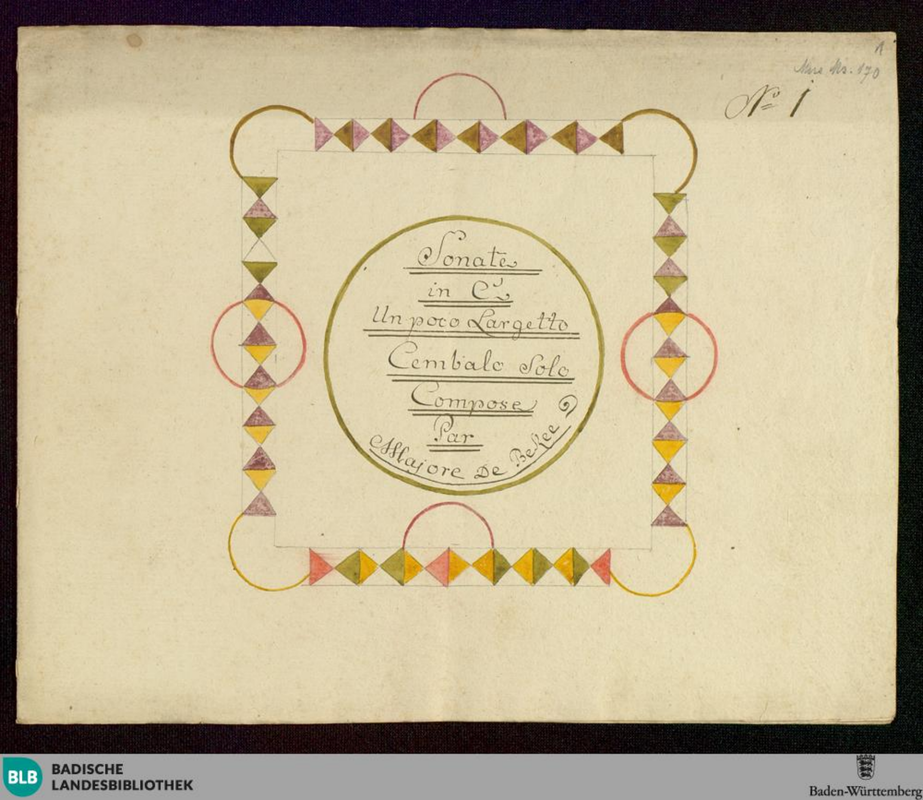 1
Mus. Hs. 170
No 1
Sonate
in C
Un poco Largetto
Cembalo Solo
Compose
Par
Majore De
BLB BADISCHE
LANDESBIBLIOTHEK
Baden-Württemberg